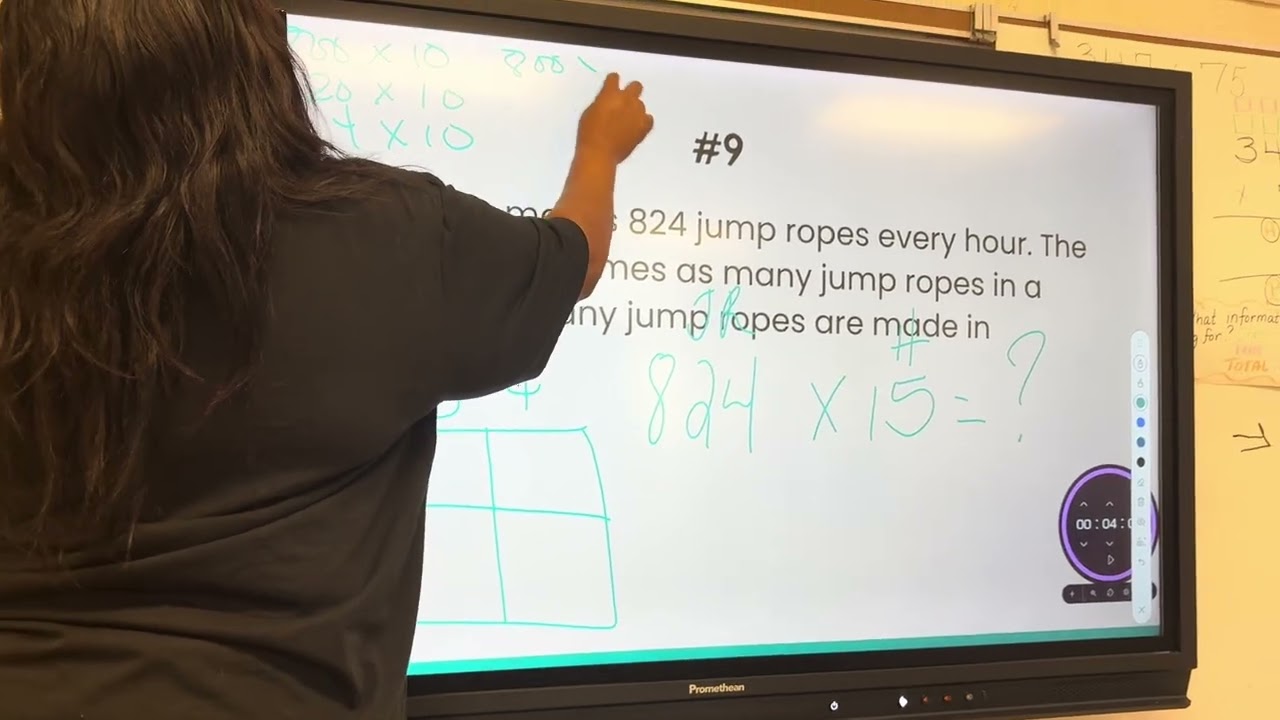 800 x 10 800 x
20 x 10
4 x 10
#9
824 jump ropes every hour. The
mes as many jump ropes in a
any jump ropes are made in
JR #
824 x 15 = ?
4
00:04:0
Promethean
347 75
34
1
hat informat
for?
TOTAL